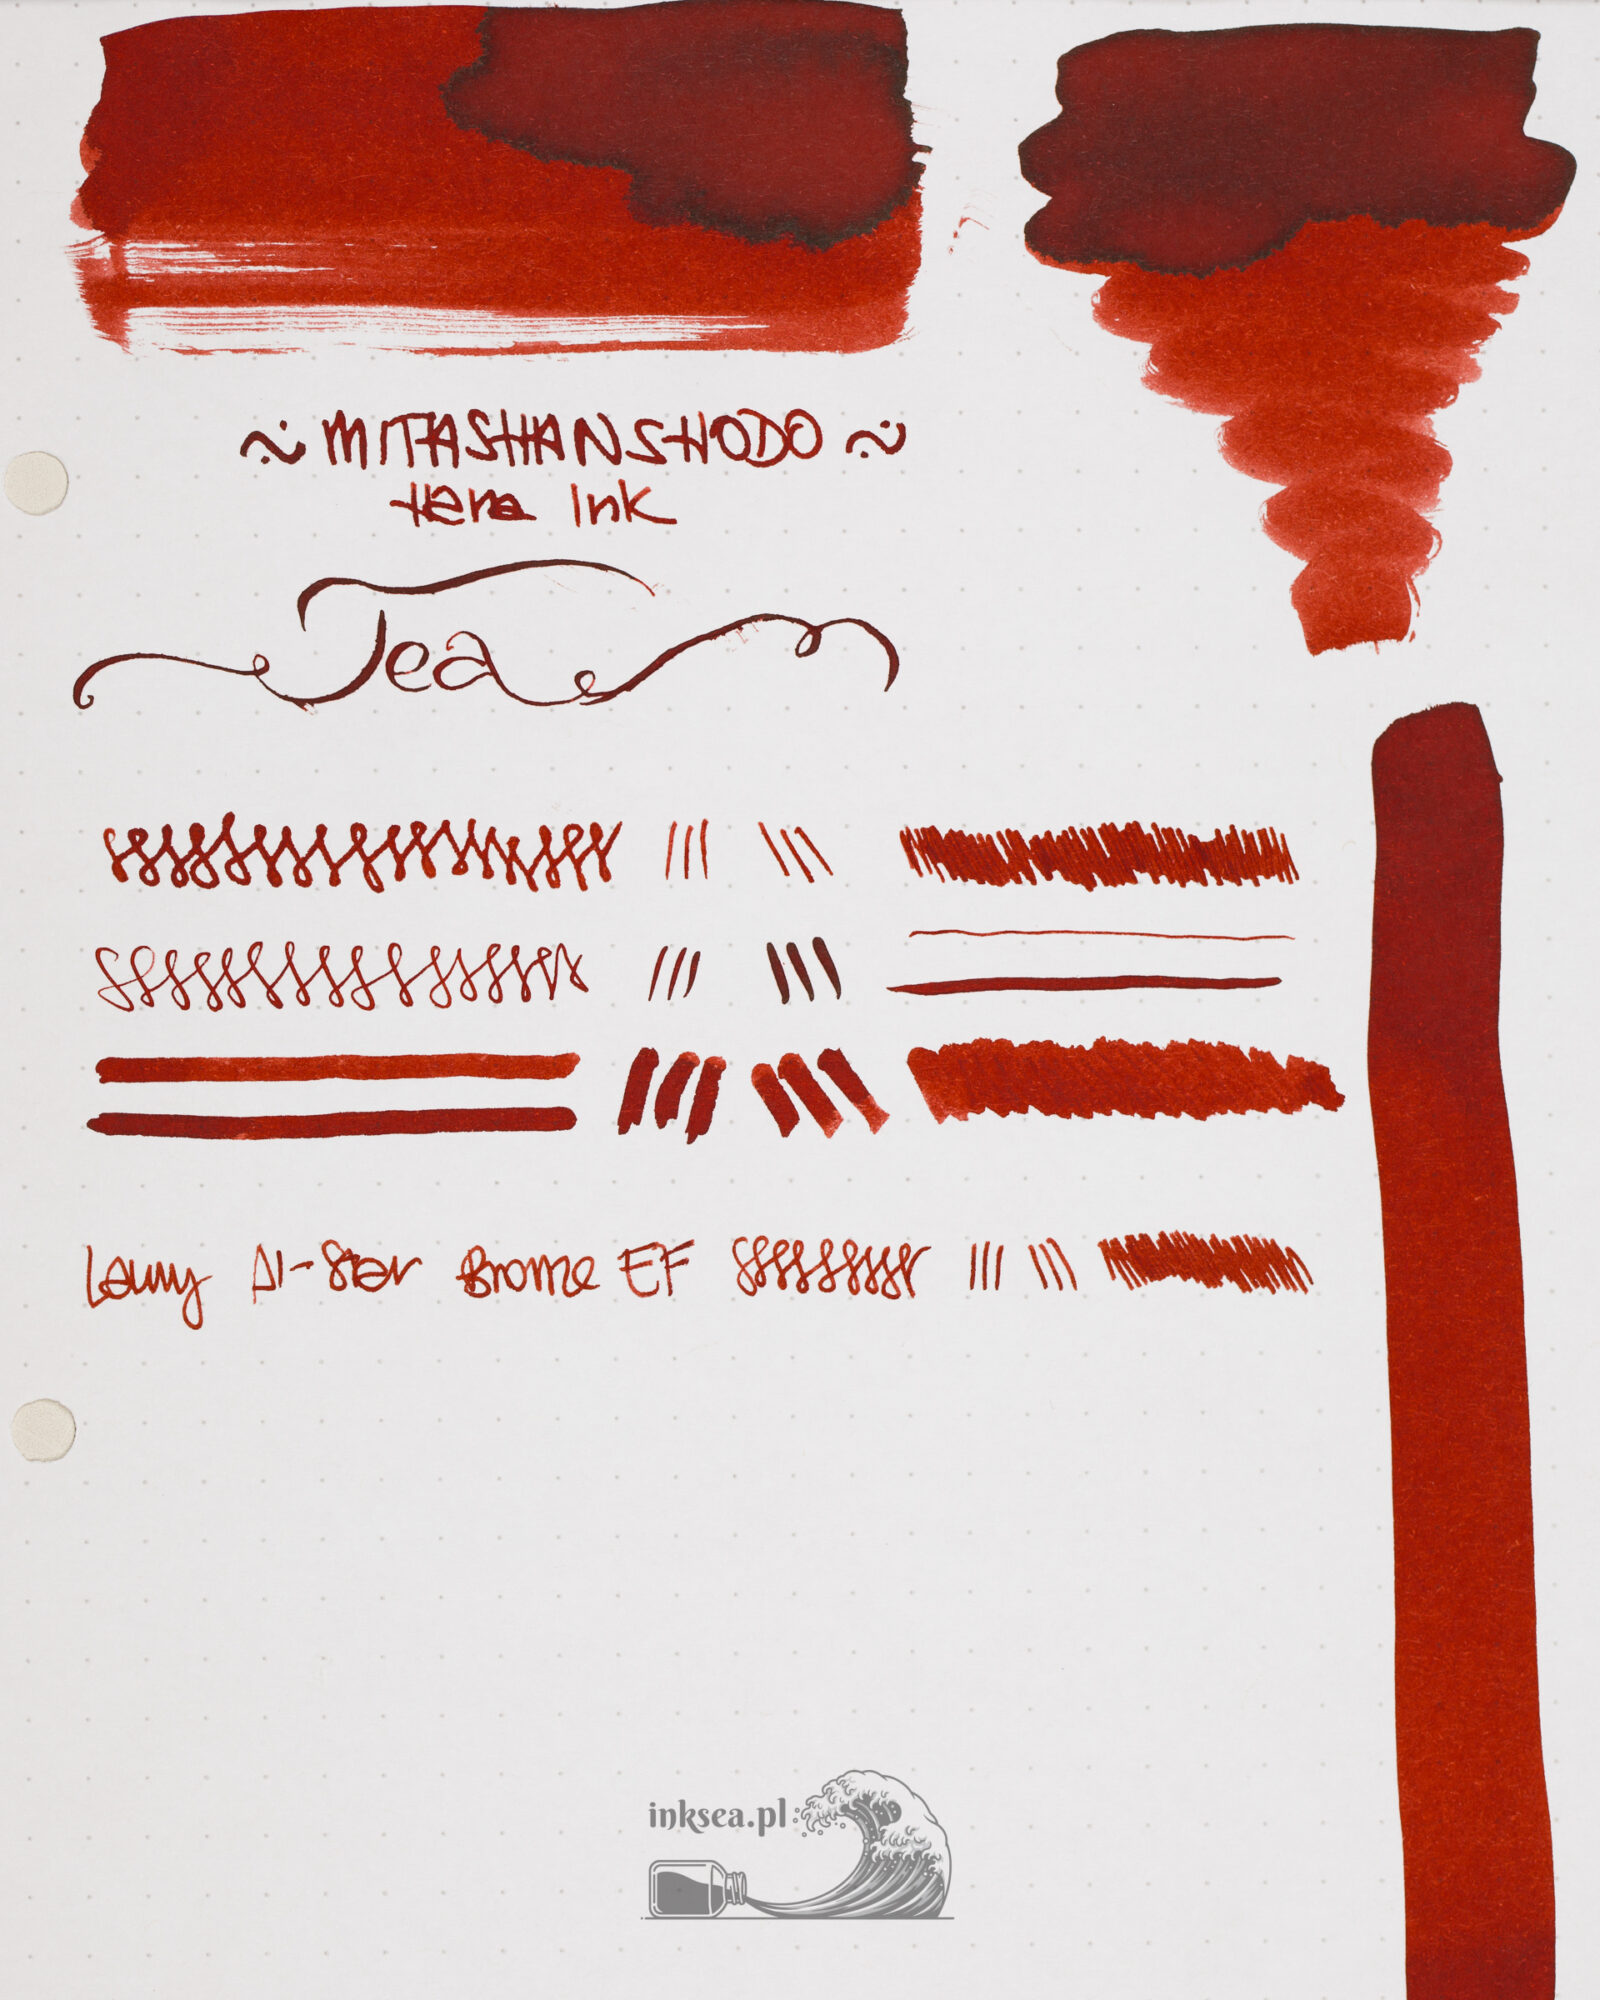 ~ MITASHANSHODO ~
Hera Ink
Tea
Lamy Al-Star Bronze EF
inksea.pl